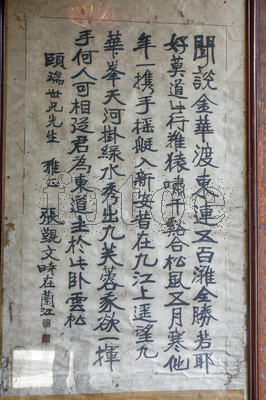 聞說金華渡東連五百灘全勝若耶
好莫道此行難猿嘯千谿合松風五月寒他
年一携手搖艇入新安昔在九江上遥望九
華峯天河掛綠水秀出九芙蓉我欲一揮
手何人可相從君為東道主於此卧雲松
頤瑞世兄先生 雅正 張觀文時在蘭江